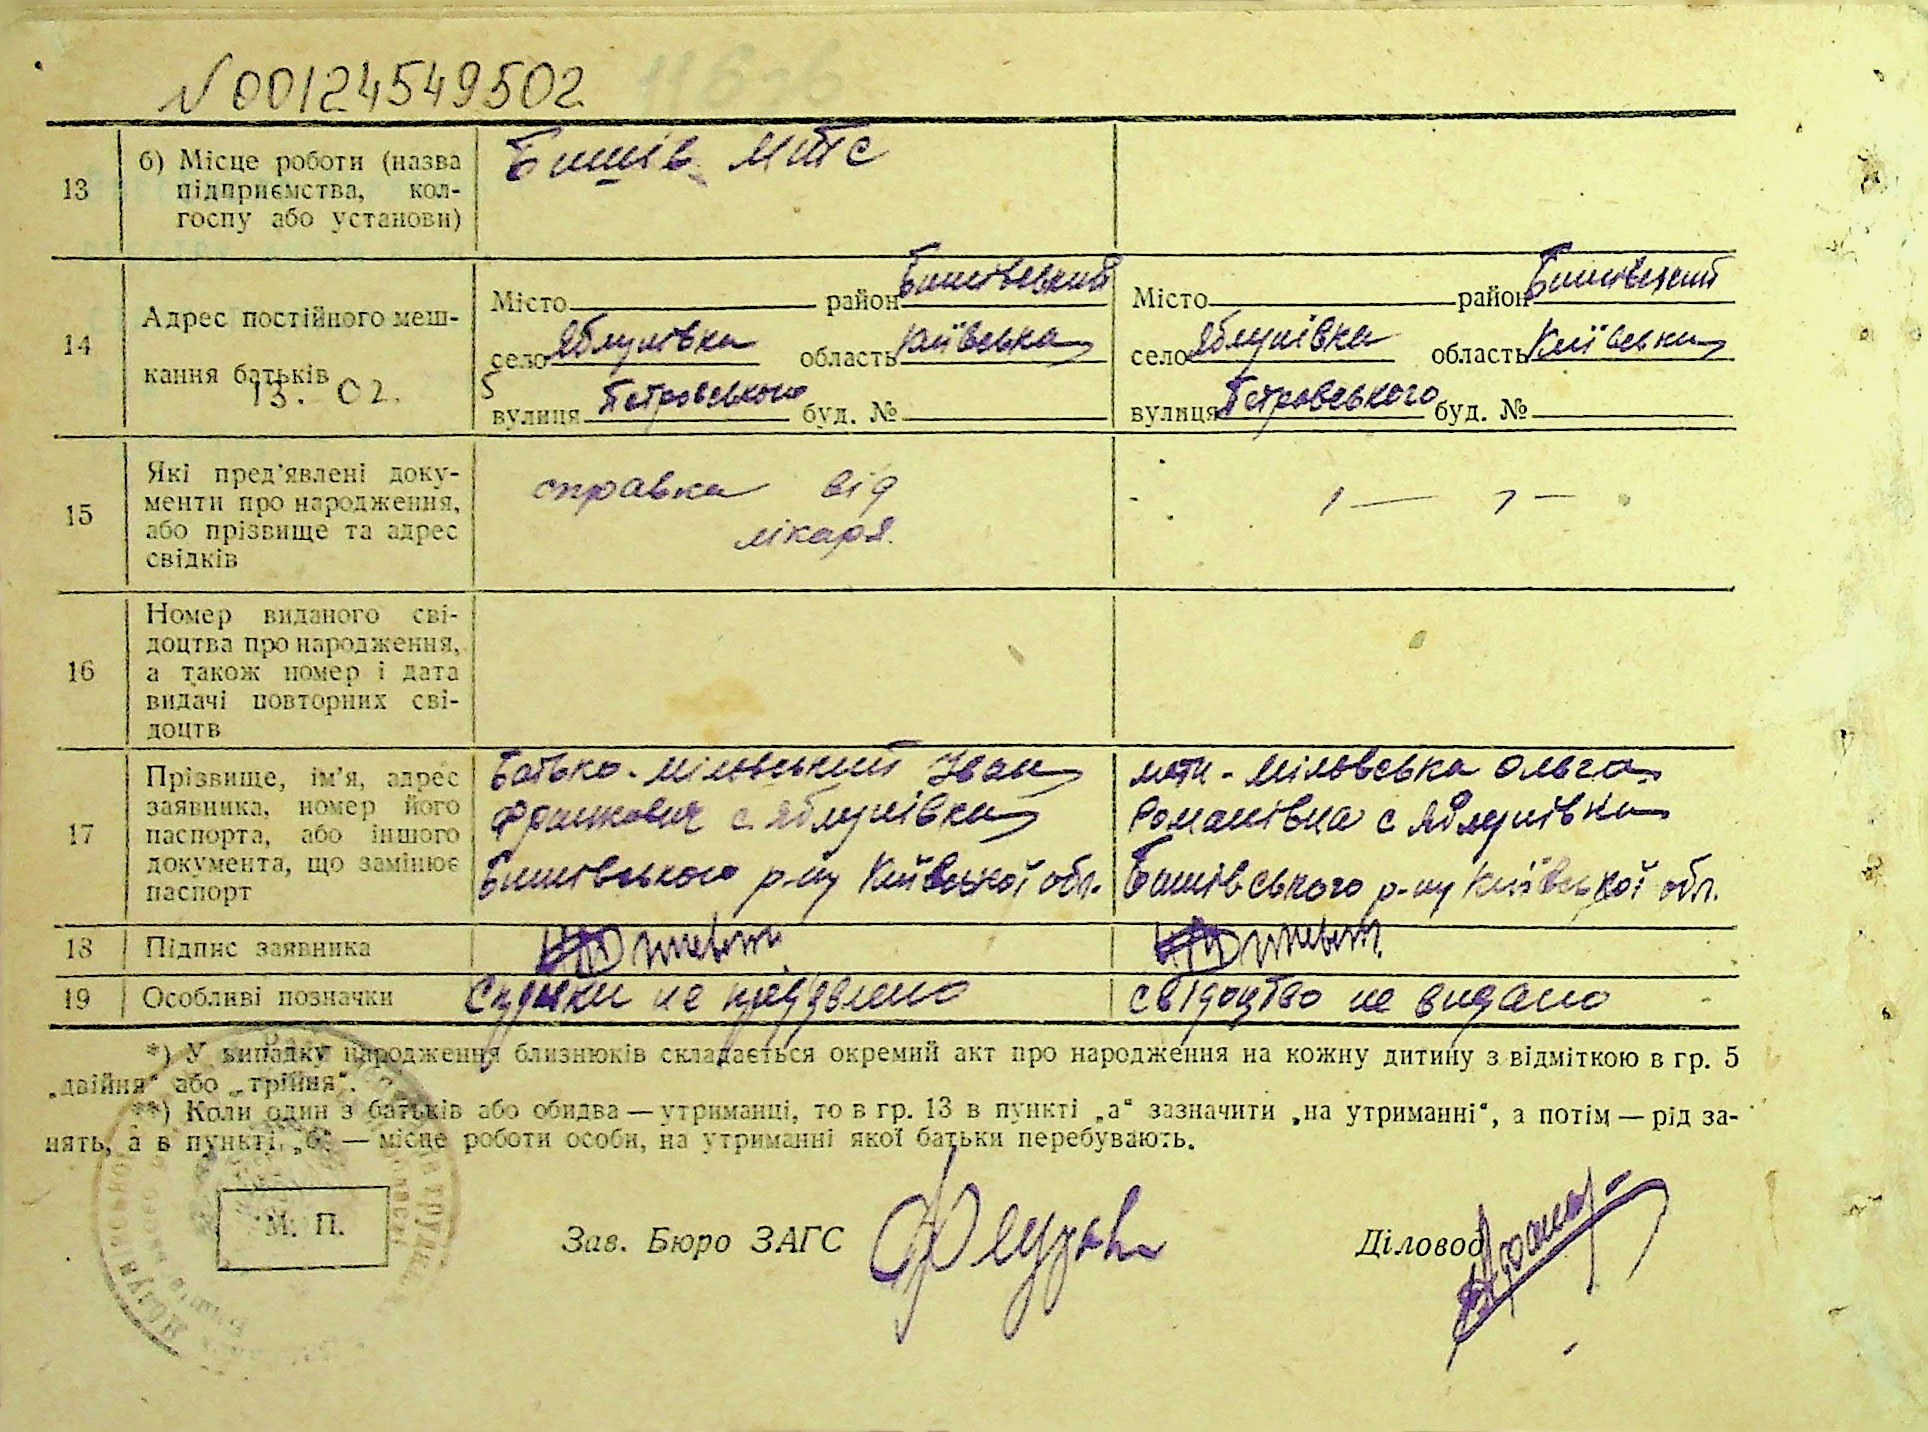 N00124549502
13
б) Місце роботи (назва
підприємства, кол-
госпу або установи)
Бишів МТС
14
Адрес постійного меш-
кання батьків
13. 02.
Місто район Бишівський
село Яблунівка область Київська
вулиця Петровського буд. №
Місто район Бишівський
село Яблунівка область Київська
вулиця Петровського буд. №
15
Які пред'явлені доку-
менти про народження,
або прізвище та адрес
свідків
справка від
лікаря
16
Номер виданого сві-
доцтва про народження,
а також номер і дата
видачі повторних сві-
доцтв
17
Прізвище, ім'я, адрес
заявника, номер його
паспорта, або іншого
документа, що замінює
паспорт
батько - Мільовський Іван
Франкович с Яблунівка
Бишівського р-ну Київської обл.
мати - Мільовська Ольга
Романівна с Яблунівка
Бишівського р-ну Київської обл.
18
Підпис заявника
19
Особливі позначки
не пред'явлено
свідоцтво не видано
*) У випадку народження близнюків складається окремий акт про народження на кожну дитину з відміткою в гр. 5
„двійня“ або „трійня“.
**) Коли один з батьків або обидва — утриманці, то в гр. 13 в пункті „а“ зазначити „на утриманні“, а потім — рід за-
нять, а в пункті „б“ — місце роботи особи, на утриманні якої батьки перебувають.
М. П.
Зав. Бюро ЗАГС
Діловод